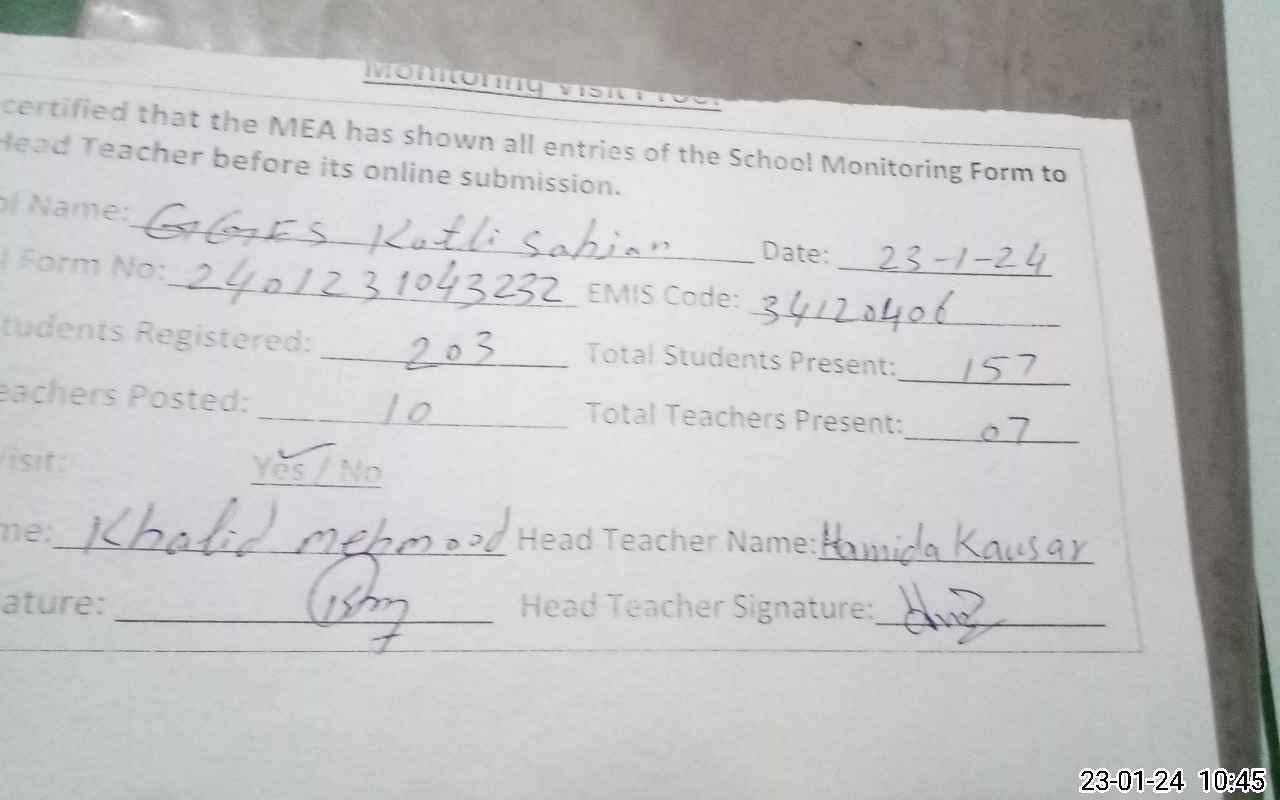 Monitoring Visit Proof
certified that the MEA has shown all entries of the School Monitoring Form to
Head Teacher before its online submission.
ol Name: GGES Kotli Sahian Date: 23-1-24
l Form No: 2401231043232 EMIS Code: 34120406
tudents Registered: 203 Total Students Present: 157
eachers Posted: 10 Total Teachers Present: 07
Visit: Yes / No
me: Khalid mehmood Head Teacher Name: Hamida Kausar
ature: Head Teacher Signature:
23-01-24 10:45